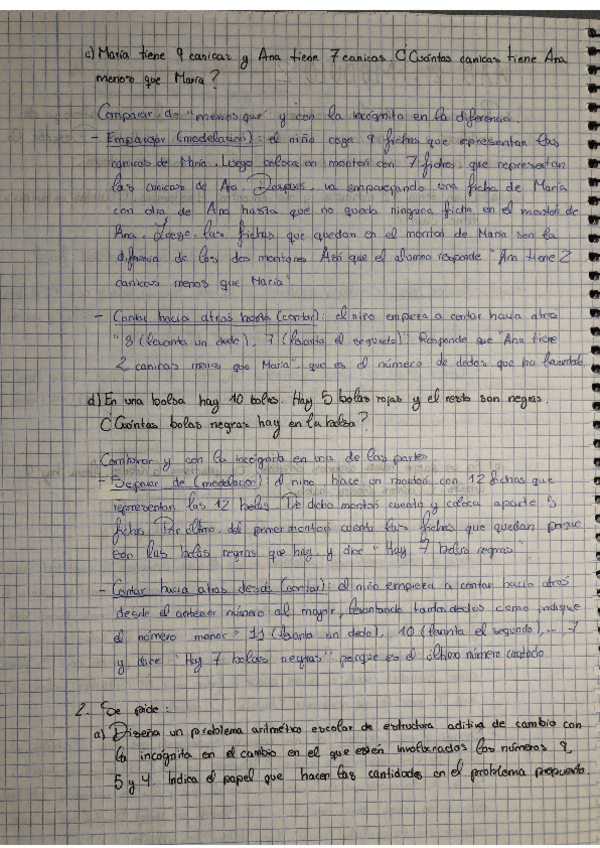 c) María tiene 9 canicas y Ana tiene 7 canicas. ¿Cuántas canicas tiene Ana
menos que María?
Comparar de "menos que" y con la incógnita en la diferencia.
- Emparejar (modelación): el niño coge 9 fichas que representan las
canicas de María. Luego coloca un montón con 7 fichas que representan
las canicas de Ana. Después, va emparejando una ficha de María
con otra de Ana hasta que no queda ninguna ficha en el montón de
Ana. Luego, las fichas que quedan en el montón de María son la
diferencia de los dos montones. Así que el alumno responde "Ana tiene 2
canicas menos que María".
- Contar hacia atrás hasta (contar): el niño empieza a contar hacia atrás
"8 (levanta un dedo), 7 (levanta el segundo)" Responde que "Ana tiene
2 canicas menos que María", que es el número de dedos que ha levantado.
d) En una bolsa hay 10 bolas. Hay 5 bolas rojas y el resto son negras.
¿Cuántas bolas negras hay en la bolsa?
Combinar y con la incógnita en una de las partes.
- Separar de (modelación): el niño hace un montón con 12 fichas que
representan las 12 bolas. De dicho montón cuenta y coloca aparte 5
fichas. Por último, del primer montón cuenta las fichas que quedan porque
son las bolas negras que hay y dice "Hay 7 bolas negras"
- Contar hacia atrás desde (contar): el niño empieza a contar hacia atrás
desde el anterior número al mayor, levantando tantos dedos como indique
el número menor "11 (levanta un dedo), 10 (levanta el segundo), ... 7
y dice "Hay 7 bolas negras" porque es el último número contado
2. Se pide:
a) Diseña un problema aritmético escolar de estructura aditiva de cambio con
la incógnita en el cambio en el que estén involucrados los números 9,
5 y 4. Indica el papel que hacen las cantidades en el problema propuesto.